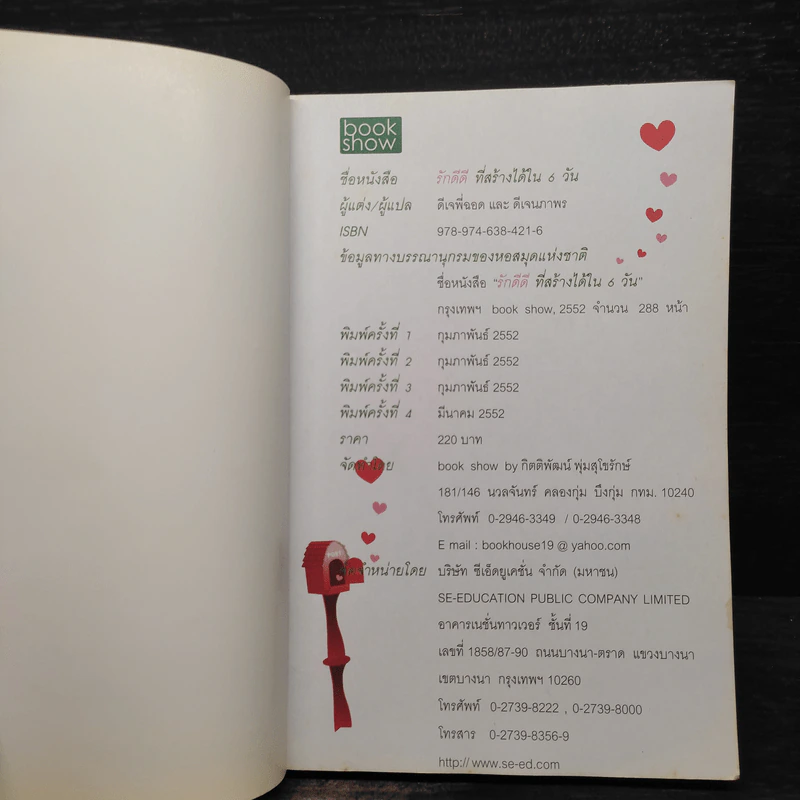 book
show
ชื่อหนังสือ รักดีดี ที่สร้างได้ใน 6 วัน
ผู้แต่ง/ผู้แปล ดีเจพี่ฉอด และ ดีเจนภาพร
ISBN 978-974-638-421-6
ข้อมูลทางบรรณานุกรมของหอสมุดแห่งชาติ
ชื่อหนังสือ "รักดีดี ที่สร้างได้ใน 6 วัน"
กรุงเทพฯ book show, 2552 จำนวน 288 หน้า
พิมพ์ครั้งที่ 1 กุมภาพันธ์ 2552
พิมพ์ครั้งที่ 2 กุมภาพันธ์ 2552
พิมพ์ครั้งที่ 3 กุมภาพันธ์ 2552
พิมพ์ครั้งที่ 4 มีนาคม 2552
ราคา 220 บาท
จัดทำโดย book show by กิตติพัฒน์ พุ่มสุโขรักษ์
181/146 นวลจันทร์ คลองกุ่ม บึงกุ่ม กทม. 10240
โทรศัพท์ 0-2946-3349 / 0-2946-3348
E mail : bookhouse19 @ yahoo.com
จัดจำหน่ายโดย บริษัท ซีเอ็ดยูเคชั่น จำกัด (มหาชน)
SE-EDUCATION PUBLIC COMPANY LIMITED
อาคารเนชั่นทาวเวอร์ ชั้นที่ 19
เลขที่ 1858/87-90 ถนนบางนา-ตราด แขวงบางนา
เขตบางนา กรุงเทพฯ 10260
โทรศัพท์ 0-2739-8222 , 0-2739-8000
โทรสาร 0-2739-8356-9
http://www.se-ed.com